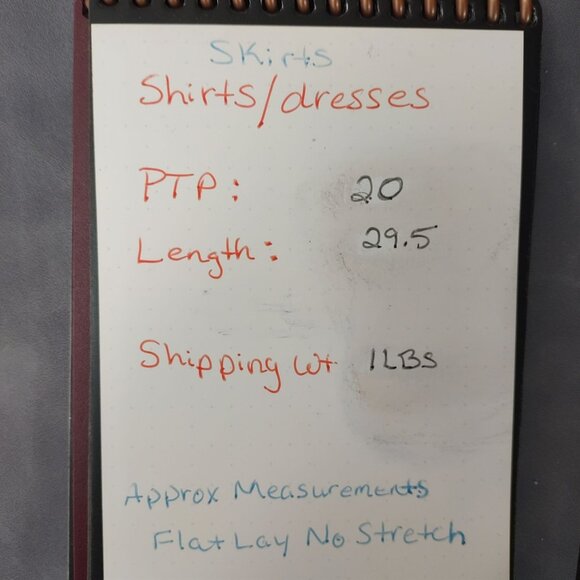 SKirts
Shirts/dresses
PTP: 20
Length: 29.5
Shipping Wt 1LBS
Approx Measurements
Flat Lay No Stretch